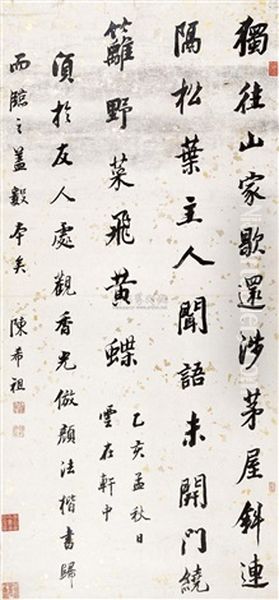 獨往山家歇還涉茅屋斜連
隔松葉主人聞語未開門繞
籬野菜飛黃蝶
乙亥孟秋日
雲在軒中
須於友人處觀香光倣顏法楷書歸
而臨之蓋彀本矣
陳希祖